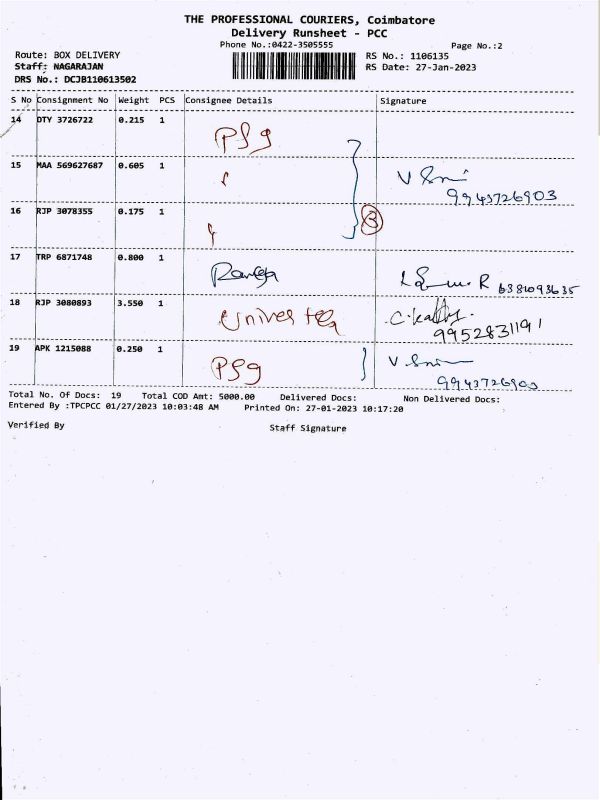 THE PROFESSIONAL COURIERS, Coimbatore
Delivery Runsheet - PCC
Phone No.:0422-3505555 Page No.:2
Route: BOX DELIVERY RS No.: 1106135
Staff: NAGARAJAN RS Date: 27-Jan-2023
DRS No.: DCJB110613502
S No Consignment No Weight PCS Consignee Details Signature
14 DTY 3726722 0.215 1 PSg
15 MAA 569627687 0.605 1 V
9943726903
16 RJP 3078355 0.175 1 3
17 TRP 6871748 0.800 1 R 6381093635
18 RJP 3080893 3.550 1 C.
9952831191
19 APK 1215088 0.250 1 PSg V
9943726903
Total No. Of Docs: 19 Total COD Amt: 5000.00 Delivered Docs: Non Delivered Docs:
Entered By :TPCPCC 01/27/2023 10:03:48 AM Printed On: 27-01-2023 10:17:20
Verified By Staff Signature